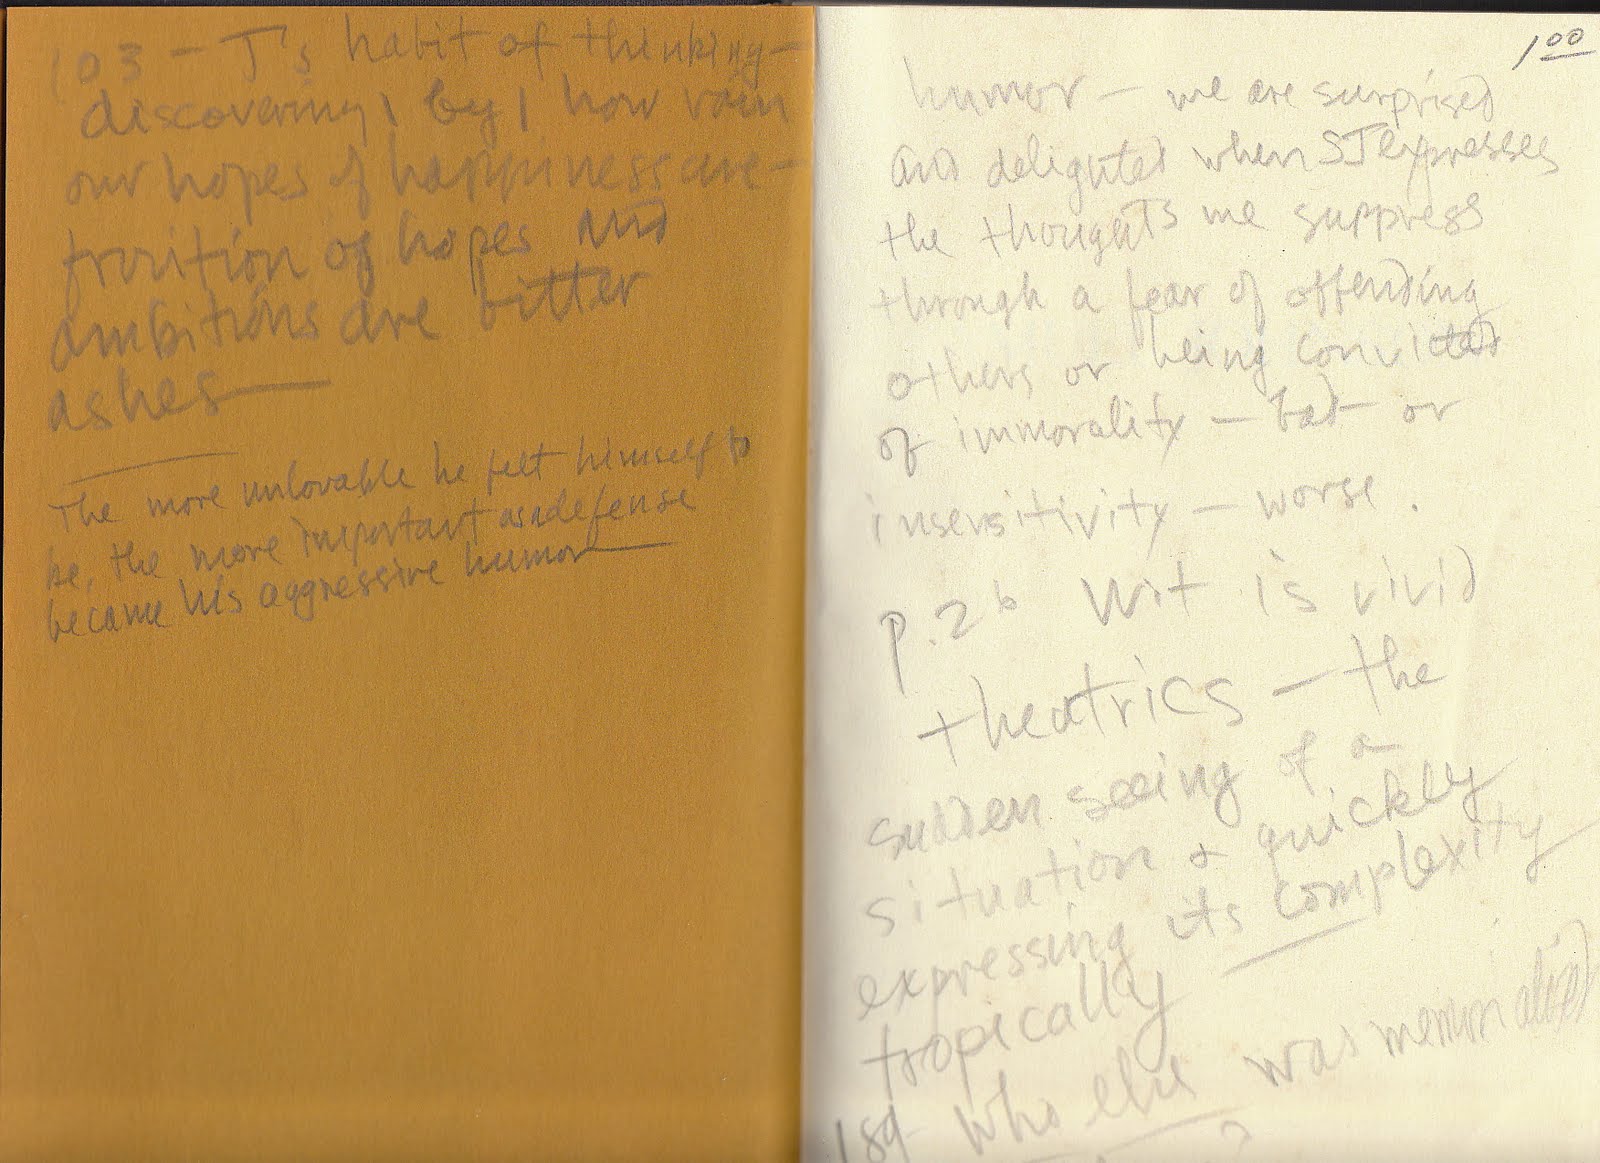 103 - J's habit of thinking -
discovering 1 by 1 how vain
our hopes of happiness are -
fruition of hopes and
ambitions are bitter
ashes —
The more unlovable he felt himself to
be, the more important as a defense
became his aggressive humor —
1 00
humor - we are surprised
and delighted when SJ expresses
the thoughts we suppress
through a fear of offending
others or being convicted
of immorality - bad - or
insensitivity - worse.
p. 26 Wit is vivid
theatrics - the
sudden seeing of a
situation & quickly
expressing its complexity
tropically
189 - Who else was memorialized
?